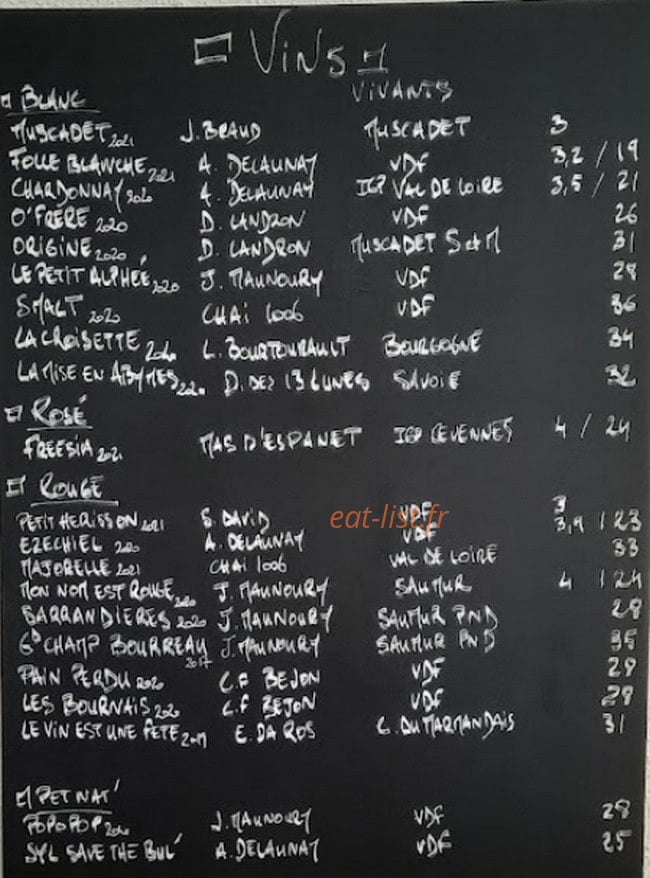 VINS
VIVANTS
BLANC
MUSCADET 2021 J. BRAUD MUSCADET 3
FOLLE BLANCHE 2021 A. DELAUNAY VDF 3,2 / 19
CHARDONNAY 2020 A. DELAUNAY IGP VAL DE LOIRE 3,5 / 21
O'FRERE 2020 D. LANDRON VDF 26
ORIGINE 2020 D. LANDRON MUSCADET S et M 31
LE PETIT ALPHÉE 2020 J. MAUNOURY VDF 28
SMALT 2020 CHAI 1006 VDF 36
LA CROISETTE 2020 L. BOURTOURAULT BOURGOGNE 34
LA MISE EN ABYMES 2020 D. DES 13 LUNES SAVOIE 32
ROSÉ
FREESIA 2021 MAS D'ESPANET IGP CEVENNES 4 / 24
ROUGE
PETIT HERISSON 2021 S. DAVID VDF 3
EZECHIEL 2020 A. DELAUNAY VDF 3,9 / 23
MAJORELLE 2021 CHAI 1006 VAL DE LOIRE 33
MON NOM EST ROUGE 2020 J. MAUNOURY SAUMUR 4 / 24
SARRANDIERES 2020 J. MAUNOURY SAUMUR PND 28
GD CHAMP BOURREAU 2017 J. MAUNOURY SAUMUR PND 35
PAIN PERDU 2020 C.F BEJON VDF 29
LES BOURNAIS 2020 C.F BEJON VDF 29
LE VIN EST UNE FETE 2019 E. DA ROS C. DU MARMANDAIS 31
PET NAT'
POPOPOP 2020 J. MAUNOURY VDF 28
SYL SAVE THE BUL' A. DELAUNAY VDF 25
eat-list.fr